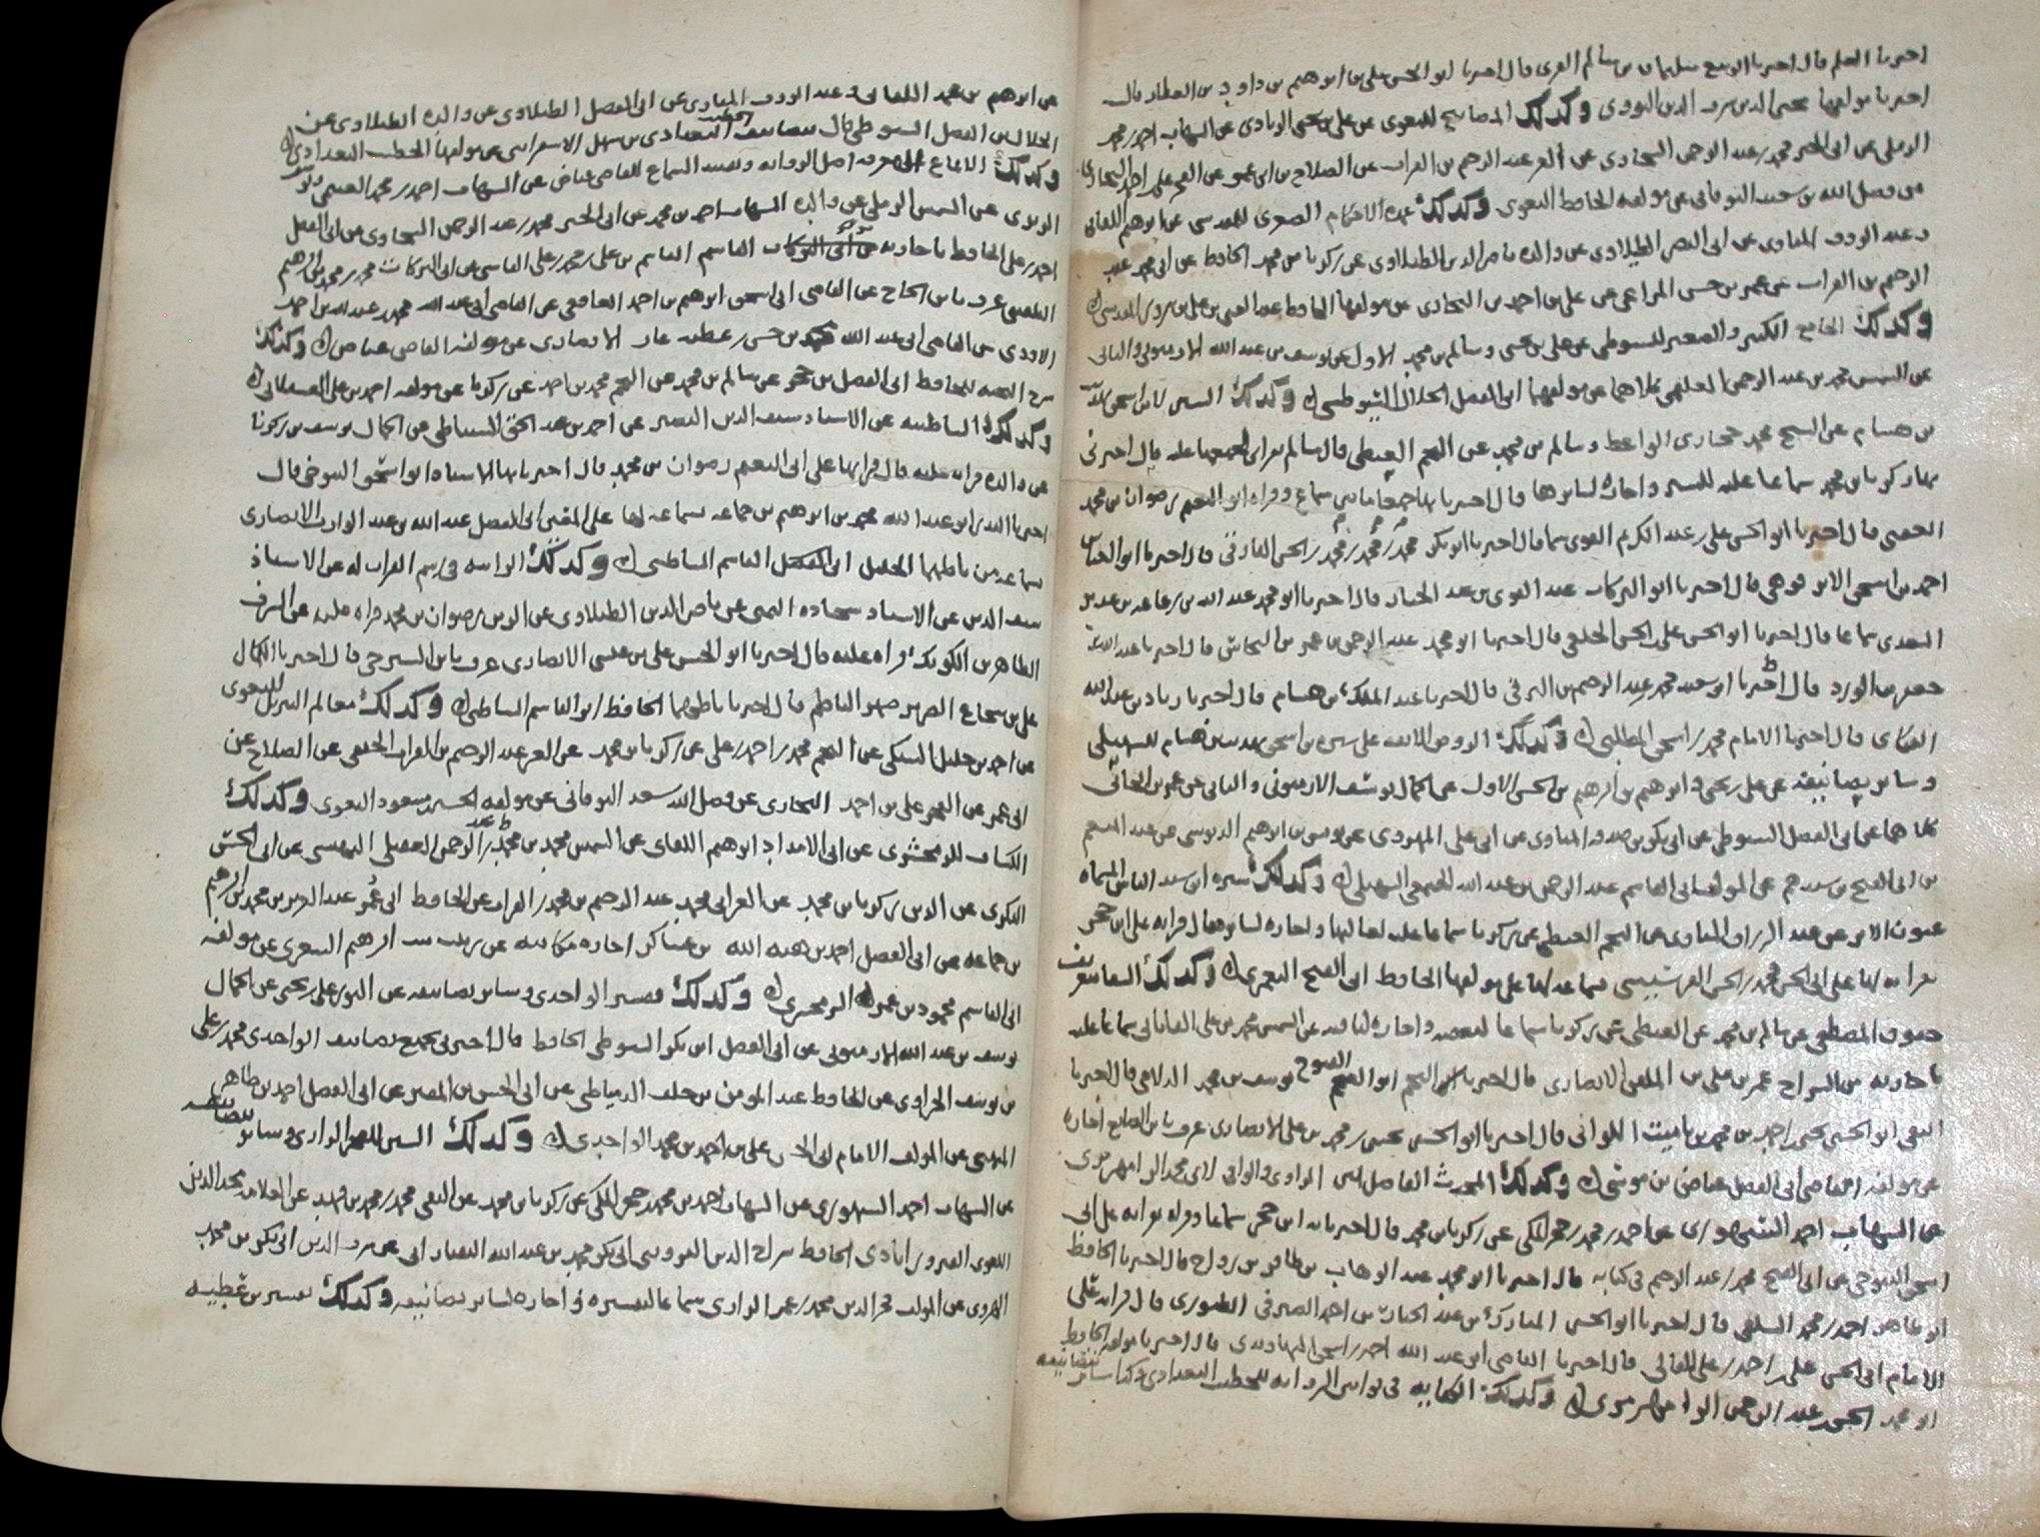 اخبرنا العلم قال اخبرنا الربيع سليمان بن سالم الغزى قال اخبرنا ابو الحسن على بن ابراهيم بن داود بن العطار قال
اخبرنا مولفها محيى الدين شرف الدين النووى وكذلك المصابيح للبغوى عن على بن يحيى الزيادى عن الشهاب احمد بن محمد
الرملى عن ابى الخير محمد بن عبد الرحمن السخاوى عن العز عبد الرحيم بن الفرات عن الصلاح بن ابى عمر عن الفخر على بن احمد البخارى
عن فضل الله بن سعد النوقانى عن مولفه الحافظ البغوى وكذلك عمدة الاحكام الصغرى للمقدسى عن ابرهيم اللقانى
وعبد الروف المناوى عن ابى النصر الطبلاوى عن والده ناصر الدين الطبلاوى عن زكريا بن محمد الحافظ عن ابى محمد عبد
الرحيم بن الفرات عن عمر بن حسن المراغى عن على بن احمد بن البخارى عن مولفها الحافظ عبد الغنى بن على بن سرور المقدسى
وكذلك الجامع الكبير والصغير للسيوطى عن على بن يحيى وسالم بن محمد الاول عن يوسف بن عبد الله الارميونى والثانى
عن الشمس محمد بن عبد الرحمن العلقمى كلاهما عن مولفهما ابى الفضل الجلال السيوطى وكذلك السير لابن اسحق
بن هشام عن الشيخ محمد حجازى الواعظ وسالم بن محمد عن النجم الغيطى قال سالم بقراتى لجميعها عليه قال اخبرنى
بها زكريا بن محمد سماعا عليه لليسير واجازة لسايرها قال اخبرنا بها ما بين سماع وقراة ابو النعيم رضوان بن محمد
العقبى قال اخبرنا ابو الحسن على بن عبد الكريم الفوى سماعا قال اخبرنا ابو بكر محمد بن محمد بن محمد بن الحسن الفارقى قال اخبرنا ابو العباس
احمد بن اسحق الابرقوهى قال اخبرنا ابو البركات عبد القوى بن عبد الجبار قال اخبرنا ابو محمد عبد الله بن رفاعة بن غدير
السعدى سماعا قال اخبرنا ابو الحسن على بن الحسن الخلعى قال اخبرنا ابو محمد عبد الرحمن بن عمر بن النحاس قال اخبرنا عبد الله بن
جعفر بن الورد قال اخبرنا ابو سعيد محمد عبد الرحيم بن البرقى قال اخبرنا عبد الملك بن هشام قال اخبرنا زياد بن عبد الله
البكاى قال اخبرنا الامام محمد بن اسحق المطلبى وكذلك الروض الانف على سيرة بن اسحق تهذيب بن هشام للسهيلى
وساير تصانيفه عن على بن يحيى وابرهيم بن ابرهيم بن الحسن الاول عن الجمال يوسف الارميونى والثانى عن عمر بن الجائى
كلاهما عن ابى الفضل السيوطى عن ابى بكر بن صدقه المناوى عن ابى على المهدوى عن يونس بن ابرهيم الدبوسى عن عبد المنعم
عن المولف ابى القاسم عبد الرحمن بن عبد الله الخثعمى السهيلى وكذلك سيرة ابن سيد الناس المسماه
عيون الاثر عن عبد الرزاق المناوى عن النجم الغيطى عن زكريا سماعا عليه لغالبها واجازة لسايرها قال قراته على ابن حجر
بقراته لها على ابى الحسن محمد بن الحسن الفرسيسى سماعه لها على مولفها الحافظ ابى الفتح اليعمرى وكذلك الشفا بتعريف
حقوق المصطفى عن سالم بن محمد عن الغيطى عن زكريا سماعا لبعضه واجازة لباقيه عن الشمس محمد بن على القاياتى سماعا عليه
باجازته من السراج عمر بن على بن الملقن الانصارى قال اخبرنا النجم ابو الفتوح يوسف بن محمد الدلاصى قال اخبرنا
التقى ابو الحسن يحيى بن احمد بن محمد بن تاميت اللواتى قال اخبرنا ابو الحسن يحيى بن محمد بن على الانصارى عرف بابن الصايغ اجازة
عن مولفه القاضى ابى الفضل عياض بن موسى وكذلك المحدث الفاصل بين الراوى والواعى لابى محمد الرامهرمزى
عن الشهاب احمد السنهورى عن احمد بن محمد بن حجر المكى عن زكريا بن محمد قال اخبرنا به ابن حجر سماعا وقراة بقراته على ابى
اسحق التنوخى عن ابى الفتح محمد بن عبد الرحيم فى كتابه قال اخبرنا ابو محمد عبد الوهاب بن ظافر بن رواج قال اخبرنا الحافظ
ابو طاهر احمد بن محمد السلفى قال اخبرنا ابو الحسن المبارك بن عبد الجبار بن احمد الصيرفى الطيورى قال قراته على
الامام ابى الحسن على بن احمد بن على الفالى قال اخبرنا القاضى ابو عبد الله احمد بن اسحق النهاوندى قال اخبرنا مولفه الحافظ
ابو محمد الحسن عبد الرحمن الرامهرمزى وكذلك الكفاية فى قوانين الرواية للخطيب البغدادى وكذا ساير تصانيفه
عن ابرهيم بن محمد اللقانى وعبد الروف المناوى عن ابى الفضل الطبلاوى عن والده الطبلاوى عن
الجلال بن الفضل السيوطى قال بتصانيف الخطيب البغدادى بن سهل الاسفراينى عن مولفها الخطيب البغدادى
وكذلك الالماع الى معرفة اصل الرواية وتقييد السماع للقاضى عياض عن الشهاب احمد بن محمد الغنيمى
عن الشمس الرملى عن والده الشهاب احمد بن محمد عن ابى الخير محمد بن عبد الرحمن السخاوى عن ابى الفضل
احمد بن على الحافظ باجازته القاسم بن على بن محمد بن على الفاسى عن ابى البركات محمد بن محمد بن ابرهيم
البلفيقى عرف بابن الحاج عن القاضى ابى اسحق ابرهيم بن احمد الغافقى عن القاضى ابى عبد الله محمد بن عبد الله بن احمد
الازدى عن القاضى ابى عبد الله محمد بن حسن بن عطية غاز الانصارى عن مولفه القاضى عياض وكذلك
شرح النخبة للحافظ ابى الفضل بن حجر عن سالم بن محمد عن النجم محمد بن احمد عن زكريا عن مولفه احمد بن على العسقلانى
وكذلك الشاطبيه عن الاستاذ سيف الدين البصير عن احمد بن عبد الحق السنباطى عن الجمال يوسف بن زكريا
عن والده قراة عليه قال قراتها على ابى النعيم رضوان بن محمد قال اخبرنا بها الاستاذ ابو اسحق التنوخى قال
اخبرنا البدر ابو عبد الله محمد بن ابرهيم بن جماعة سماعه لها على المقرى ابى الفضل عبد الله بن عبد الوارث الانصارى
سماعه من ناظمها الجليل ابى القاسم الشاطبى وكذلك الرائية فى رسم القران له عن الاستاذ
سيف الدين عن الاستاذ شحاذه اليمنى عن ناصر الدين الطبلاوى عن الزين رضوان بن محمد قراة عليه عن الشرف
الطاهر بن الكويك قراة عليه قال اخبرنا ابو الحسن على بن عيسى الانصارى عرف بابن السيرجى قال اخبرنا الكمال
على بن شجاع الضرير صهر الناظم قال اخبرنا ناظمها الحافظ ابو القاسم الشاطبى وكذلك معالم التنزيل للبغوى
عن احمد بن خليل السبكى عن النجم محمد بن احمد بن على عن زكريا بن محمد عن العز عبد الرحيم بن الفرات الحنفى عن الصلاح عن
ابى عمر عن الفخر على بن احمد البخارى عن فضل الله سعد النوقانى عن مولفه الحسين بن مسعود البغوى وكذلك
الكشاف للزمخشرى عن ابى الامداد ابرهيم اللقانى عن الشمس محمد بن محمد بن عبد الرحمن العقيلى البهنسى عن ابى الحسن
البكرى عن الزين زكريا بن محمد عن العز ابى محمد عبد الرحيم بن محمد بن الفرات عن الحافظ ابى عمر عبد العزيز بن محمد بن ابرهيم
بن جماعة عن ابى الفضل احمد بن هبة الله بن عساكر اجازة مكاتبة عن زينب بنت ابرهيم الشعرى عن مولفه
ابى القاسم محمود بن عمر الزمخشرى وكذلك تفسير الواحدى وساير تصانيفه عن النور على بن يحيى عن الجمال
يوسف بن عبد الله الارميونى عن ابى الفضل ابى بكر السيوطى الحافظ قال اخبرنى بجميع تصانيف الواحدى محمد بن على
بن يوسف الحراوى عن الحافظ عبد المومن بن خلف الدمياطى عن ابى الحسن بن المقير عن ابى الفضل احمد بن طاهر
الميهنى عن المولف الامام ابى الحسن على بن احمد بن محمد الواحدى وكذلك التفسير للفخر الرازى وساير تصانيفه
عن الشهاب احمد السنهورى عن الشهاب احمد بن محمد حجر المكى عن زكريا بن محمد عن التقى محمد بن محمد بن فهد عن العلامة مجد الدين
اللغوى الفيروزابادى الحافظ سراج الدين القزوينى ابى بكر محمد بن عبد الله التفتازانى عن شرف الدين ابى بكر بن محمد
الهروى عن المولف فخر الدين محمد بن عمر الرازى سماعا لتفسيره واجازة لساير تصانيفه وكذلك تفسير بن عطية